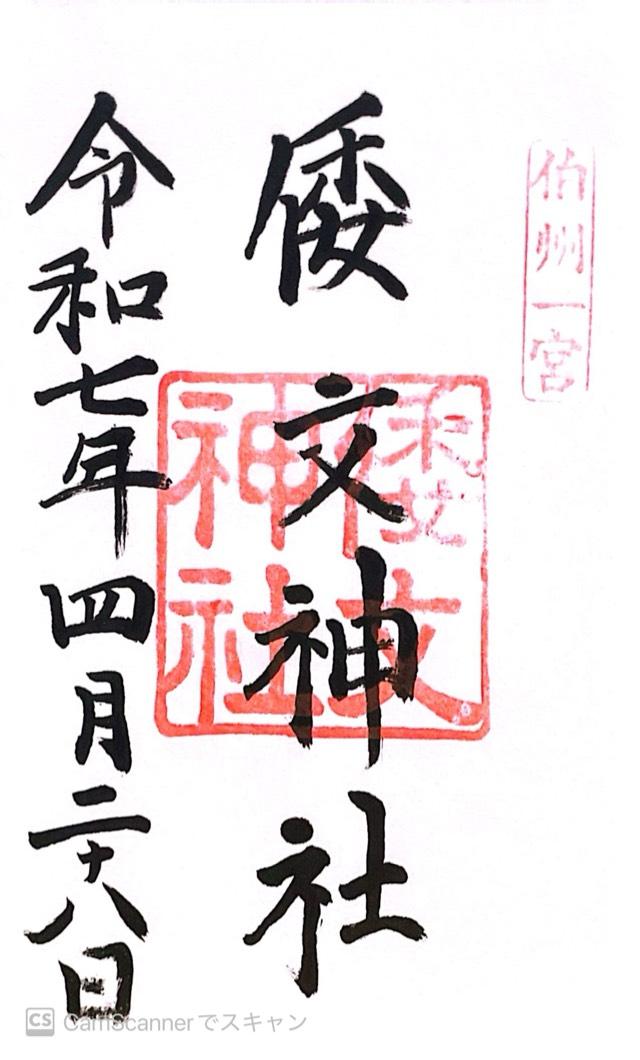 伯州一宮
倭文神社
倭文神社
令和七年四月二十八日
CS CamScannerでスキャン